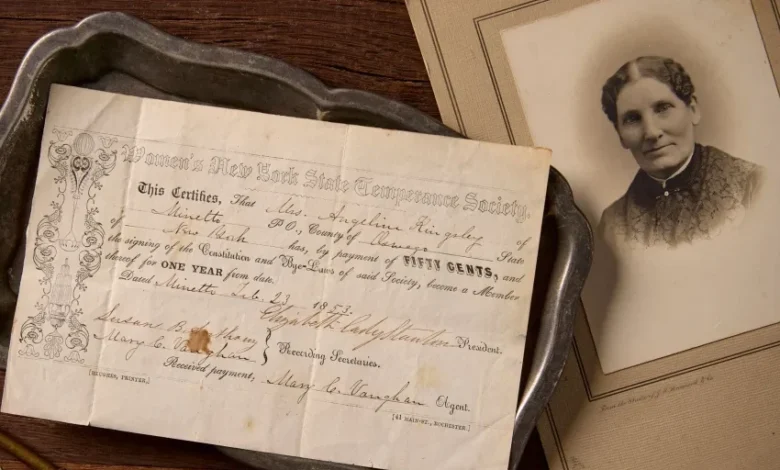 Women's New York State Temperance Society.
This Certifies, That Mrs. Angeline Kingsley of
Minetto P.O., County of Oswego State
of New York has, by payment of FIFTY CENTS, and
the signing of the Constitution and Bye-Laws of said Society, become a Member
thereof for ONE YEAR from date.
Dated Minetto Feb. 23 1853.
Elizabeth Cady Stanton President.
Susan B. Anthony
Mary C. Vaughan } Recording Secretaries.
Received payment, Mary C. Vaughan Agent.
PRINTER.]
ROCHESTER.]